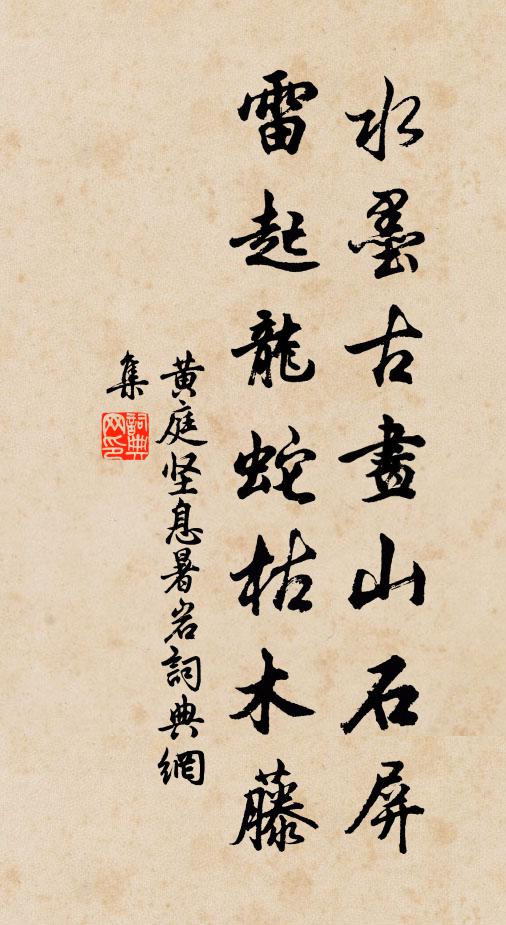 水墨古畫山石屏
雷起龍蛇枯木藤
黄庭坚息暑岩詞典網
集
詞典
网印